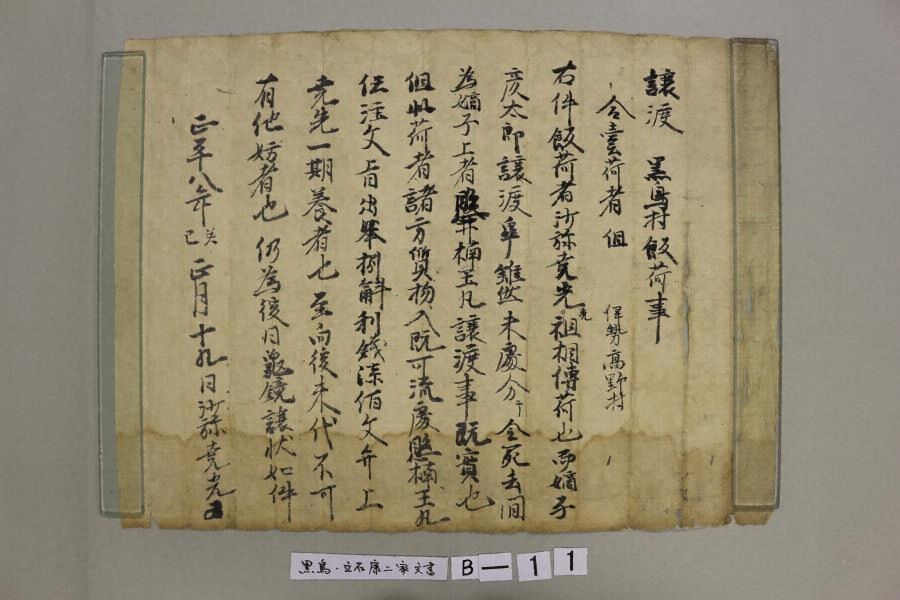 譲渡 黒鳥村飯荷事
合壹荷者 但 伊勢高野村
右件飯荷者沙弥堯光祖相傳荷也而嫡子
彦太郎譲渡畢雖然未處分ニ令死去間
為嫡子上者 楠王丸譲渡事既實也
但此荷者諸方質物入既可流處 楠王丸
任注文旨出挙捌斛利銭漆佰文弁上
堯光一期養者也至向後末代不可
有他妨者也仍為後日亀鏡譲状如件
正平八年癸巳正月十九日沙弥堯光
黒鳥・立石康二家文書 B-11